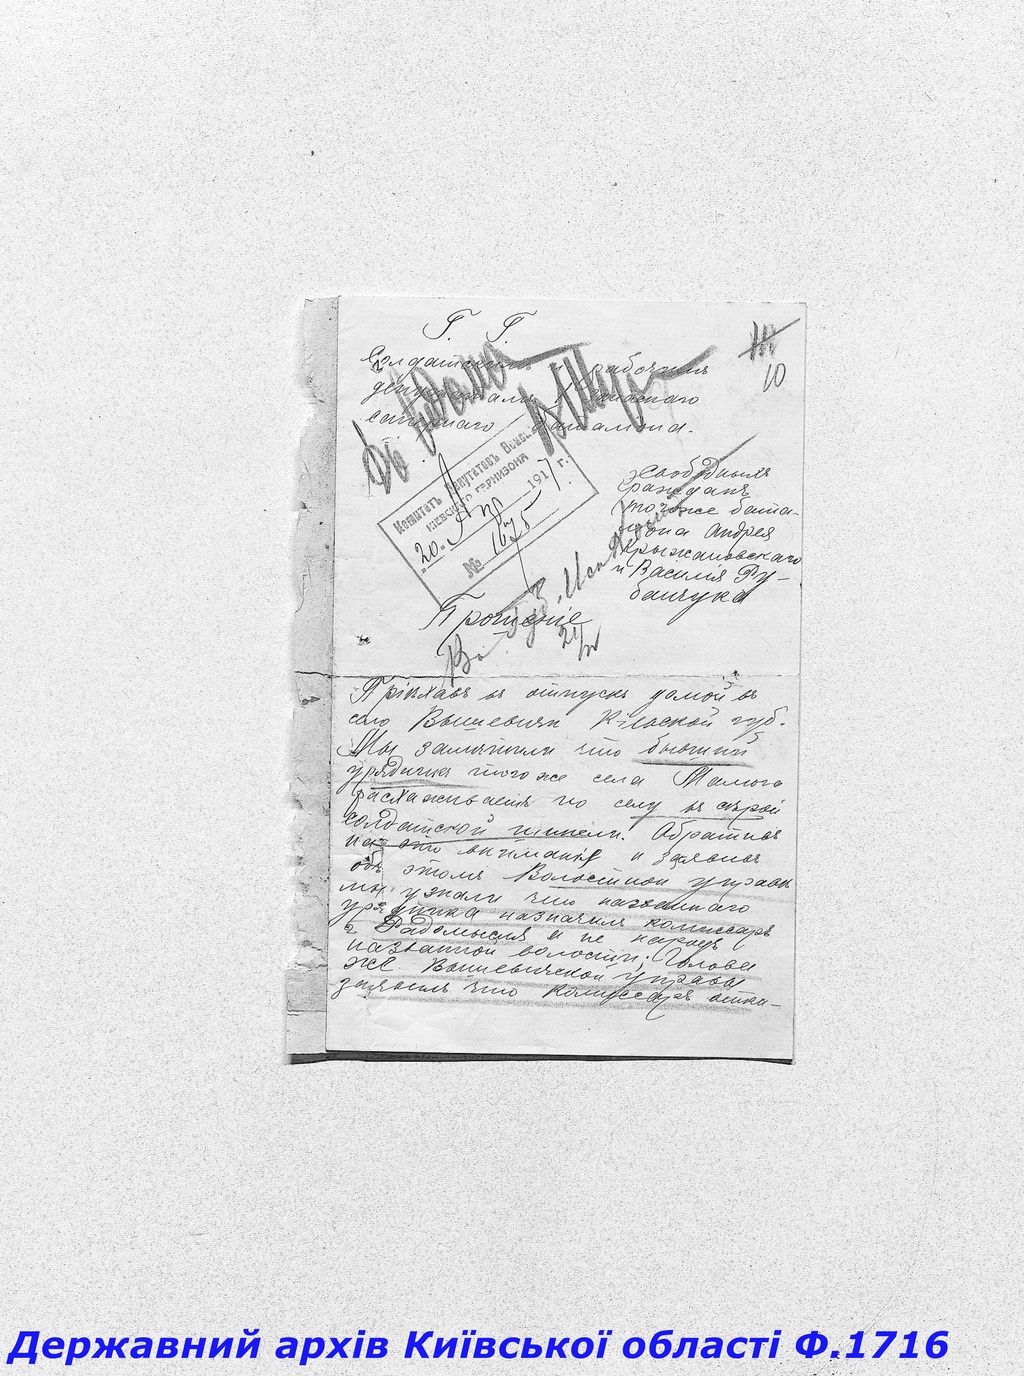 Г. Г.
Солдатскимъ и рабочимъ
депутатамъ Кіевскаго
баталіона.
10
Комитетъ Депутатовъ Войскъ
КІЕВСКАГО ГАРНИЗОНА
"20" Апр 1917 г.
№ 1675
Свободныхъ
Гражданъ
того же бата-
ліона Андрея
Крыжановскаго
и Василія Ру-
банчука
Прошеніе
21/IV
Пріѣхавъ въ отпускъ домой въ
село Вышевичи Кіевской губ.
Мы замѣтили что бывший
урядникъ того же села
расхаживаетъ по селу въ сѣрой
солдатской шинели. Обративъ
на это вниманія и заявивъ
объ этомъ Волостной управѣ
мы узнали что названнаго
урядника назначилъ комиссаръ
г. Радомысля и не народъ
названной волости; Голова
же Вышевичской управы
заявилъ что комиссаръ отка-
Державний архів Київської області Ф.1716